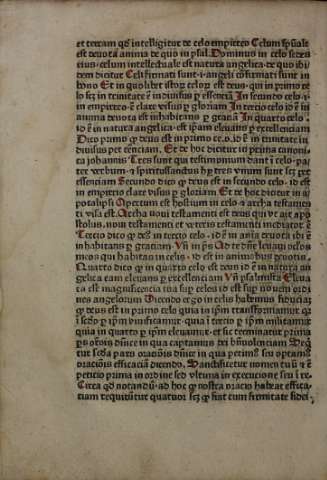 et terram qđ intelligitur de celo empireo Celum spūale
est deuota anima de quo in psal. Dominus in celo sedes
eius. celum intellectuale est natura angelica. de quo ibi
dem dicitur Celi firmati sunt. i. angeli cōfirmati sunt in
bono Et in quolibet istoꝝ celoꝝ est deus. qui in primo ce
lo scꝫ in trinitate ē indiuisus ꝑ essenciā In secundo celo. i.
in empireo. ē clare visus ꝑ gloriam In tercio celo id ē in
anima deuota est inhabitans ꝑ graciā In quarto celo.
id ē in natura angelica. est ipam eleuans ꝑ excellenciam
Dico primo ꝙ deus est in primo celo. id ē in trinitate in
diuisus per essenciam. Et de hoc dicitur in prima canoni
ca iohannis Tres sunt qui testimonium dant ī celo. pa
ter verbum. et spiritussanctus et hij tres vnum sunt scꝫ per
essenciam Secundo dico ꝙ deus est in secundo celo. id est
in empireo clare visus ꝑ gloriam Et de hoc dicitur in a
pocalipsi Apertum est hostium in celo. et archa testamen
ti visa est. Archa noui testamenti est deus qui vt ait apo
stolus. noui testamenti et veteris testamenti mediator ē
Tercio dico ꝙ deꝰ ē in tercio celo. id ē in aīa deuota ibi ē
inhabitans ꝑ graciam. Vñ in pš Ad te dñe leuaui oclos
meos qui habitas in celis. id est in animabus deuotis.
Quarto dico ꝙ in quarto celo est deus id ē in natura an
gelica eam eleuans ꝑ excellenciam Vñ psalmista Eleua
ta est magnificencia tua sup celos id est sup nouem ordi
nes angelorum Dicendo ergo in celis habemus fiduciā
ꝙ deus est in primo celo quia in ipm transformamur. qꝛ
i scdo ꝑ ipm viuificamur. quia i tercio ꝑ ipm militamur
quia in quarto ꝑ ipm eleuamur. et sic terminatur prima
ps orōnis dñice in qua captamus dei beniuolenciam Seq̄
tur scđa pars oraciōis dñice in qua petimꝰ seu optamꝰ
oraciōis efficaciā dicendo. Sanctificetur nomen tuū et ē
peticio prima in ordine sed vltima in execucione seu ī re.
Circa qđ notandū. ad hoc ꝙ nostra oracio habeat effica
ciam requirūtur quatuor scꝫ ꝙ fiat cum firmitate fidei